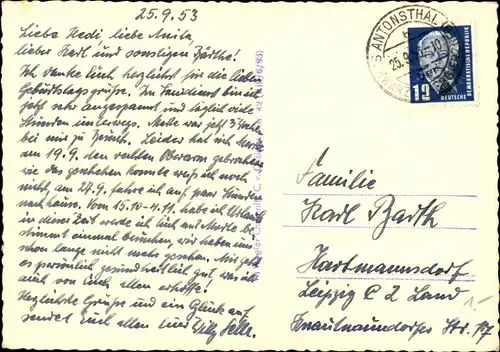 25.9.53
Liebe Hedi liebe Anita,
lieber Karl und sonstigen Bärthe!
Ich danke Euch herzlichst für die lieben
Geburtstagsgrüsse. Im Fahrdienst bin ich
jetzt sehr angespannt und täglich viele
Stunden unterwegs. Melle war jetzt 3 Tage
bei mir zu Besuch. Leider hat sich
am 19.9. den rechten Oberarm gebrochen
wie das geschehen konnte weiß ich noch
nicht, am 27.9. fahre ich auf paar Stunden
nachhause. Vom 15.10-4.11. habe ich Urlaub
in dieser Zeit werde ich Euch auf
stimmt einmal besuchen, wir haben uns
schon lange nicht mehr gesehen. Mir geht
es persönlich gesundheitlich gut, was ich
auch von Euch allen erhoffe!
Herzlichste Grüsse und ein Glück auf
sendet Euch allen Euer Willy
ANTONSTHAL
25.9.
12
DEUTSCHE
DEMOKRATISCHE REPUBLIK
Familie
Karl Barth
Hartmannsdorf
Leipzig C 2 Land
Knautnaundorfer Str. 17